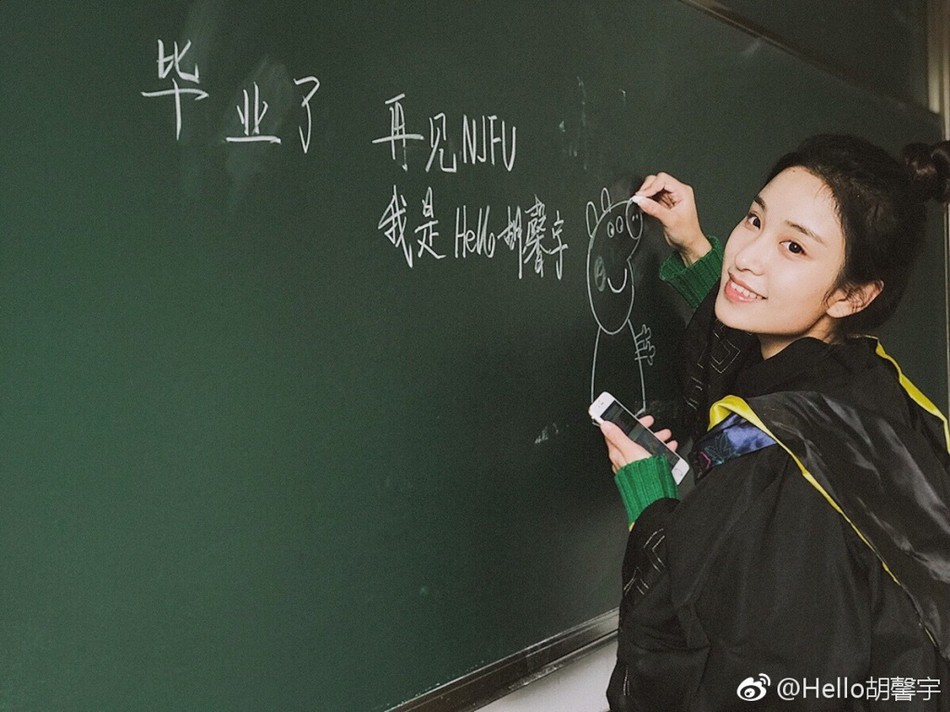 毕业了
再见NJFU
我是Hello胡馨宇
@Hello胡馨宇